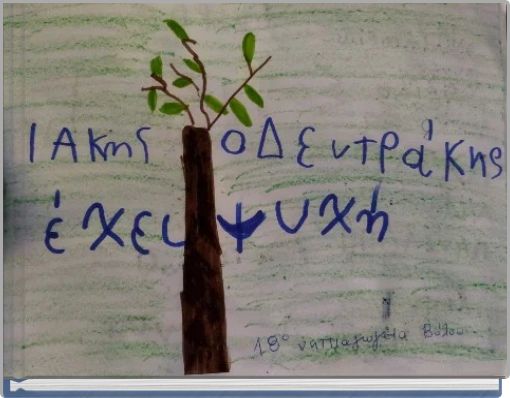 ΙΑκης οΔεντράκης
έχει ψυχή
18ο νηπιαγωγείο Βόλου